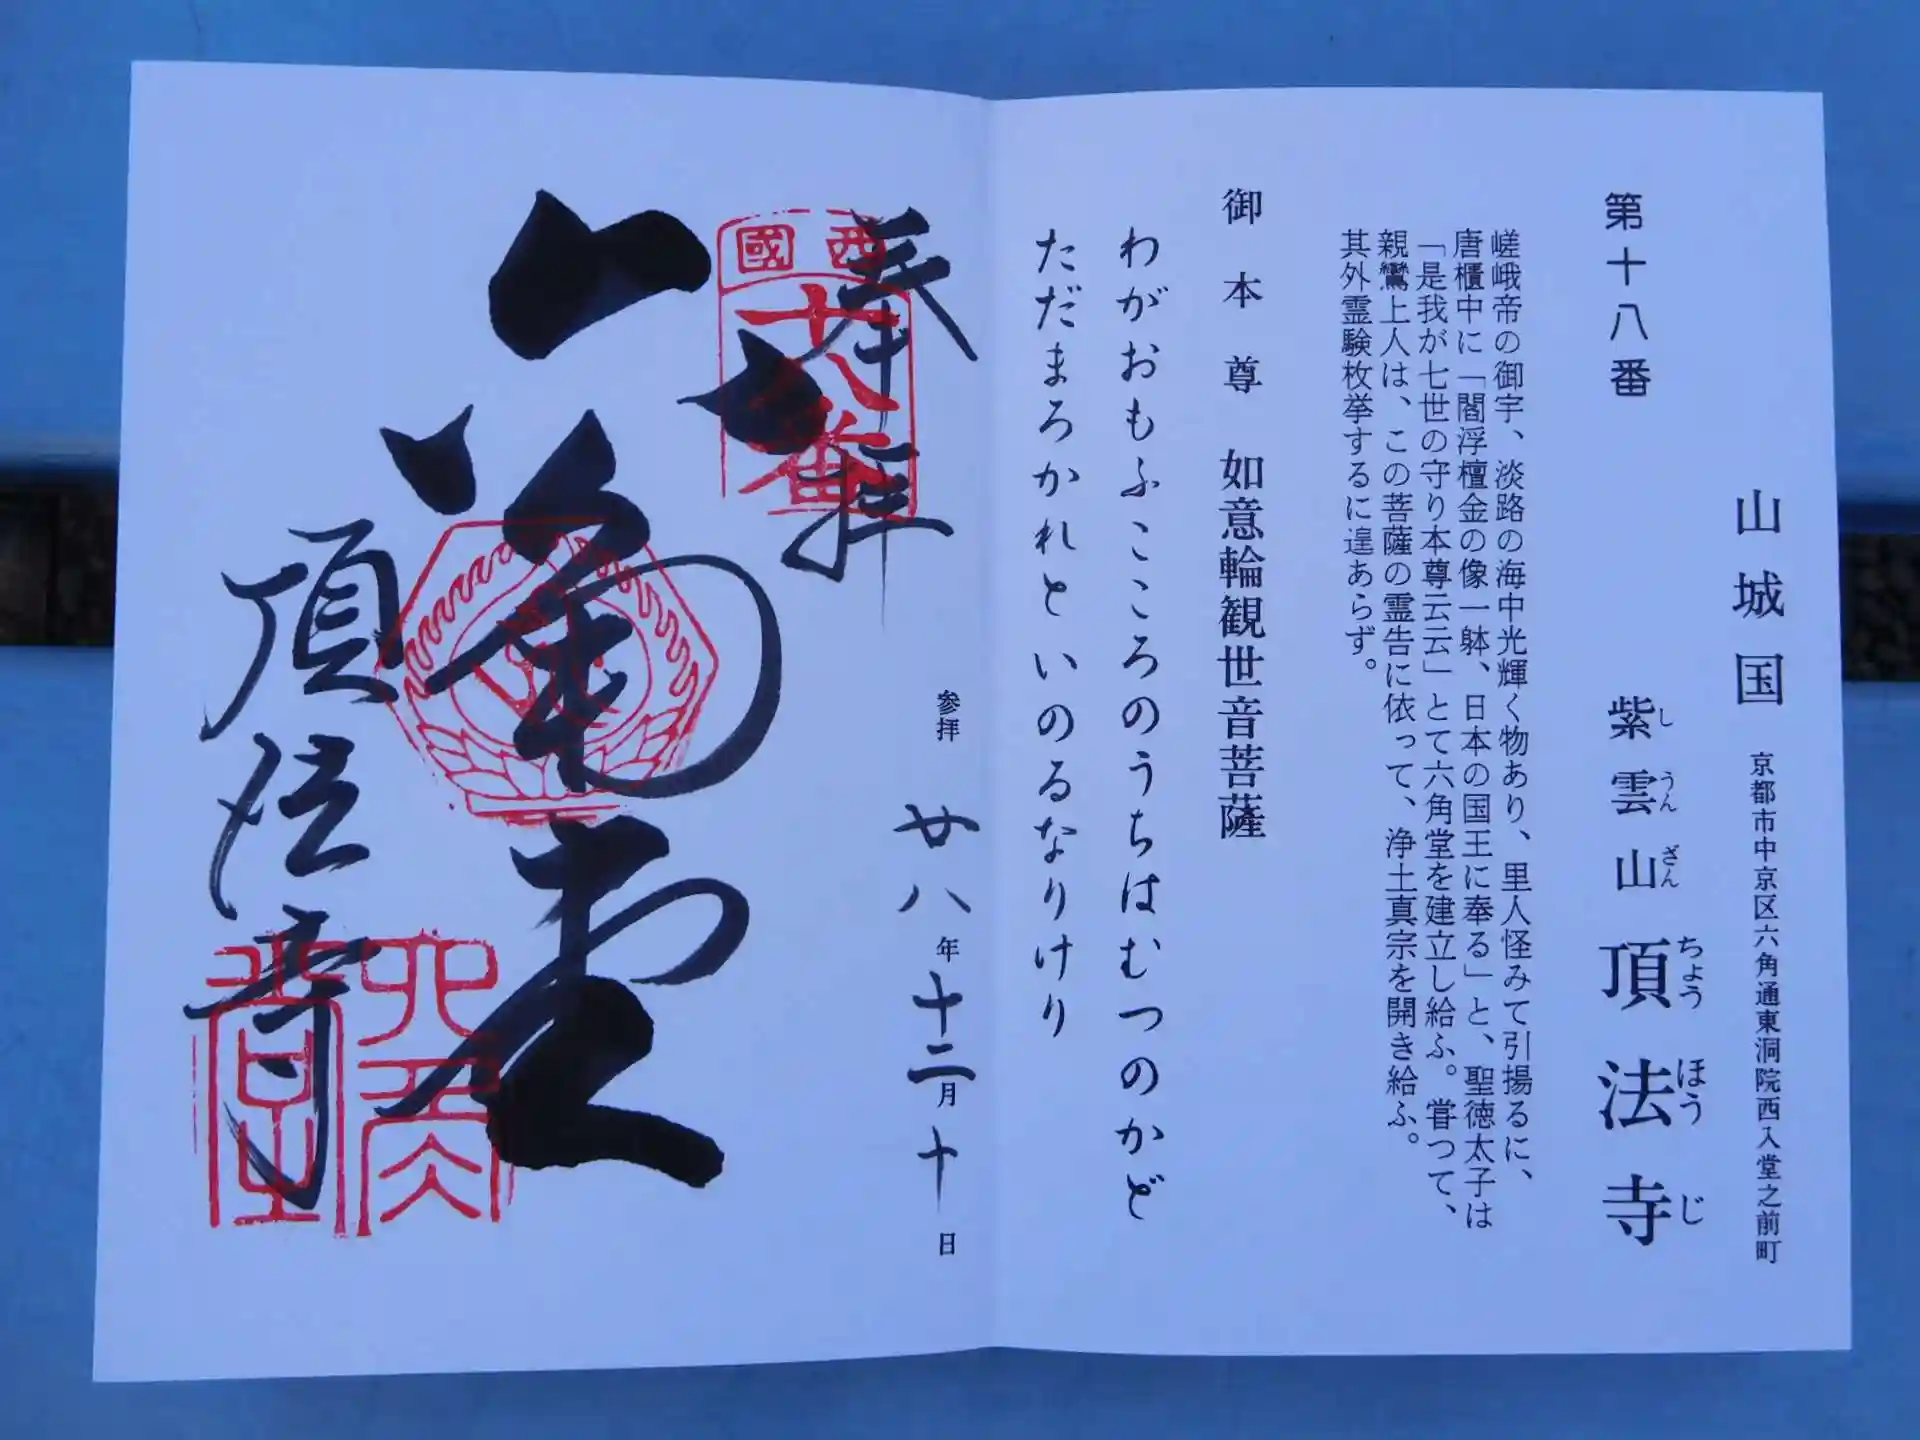 山城国 京都市中京区六角通東洞院西入堂之前町
第十八番 紫雲山 頂法寺
し うん ざん ちょう ほう じ
嵯峨帝の御宇、淡路の海中光輝く物あり、里人怪みて引揚るに、
唐櫃中に「閻浮檀金の像一躰、日本の国王に奉る」と、聖徳太子は
「是我が七世の守り本尊云云」とて六角堂を建立し給ふ。嘗つて、
親鸞上人は、この菩薩の霊告に依って、浄土真宗を開き給ふ。
其外霊験枚挙するに遑あらず。
御本尊 如意輪観世音菩薩
わがおもふこころのうちはむつのかど
ただまろかれといのるなりけり
参拝 廿八年十二月十日
奉拝
西國
十八番
六角堂
頂法寺
六角堂